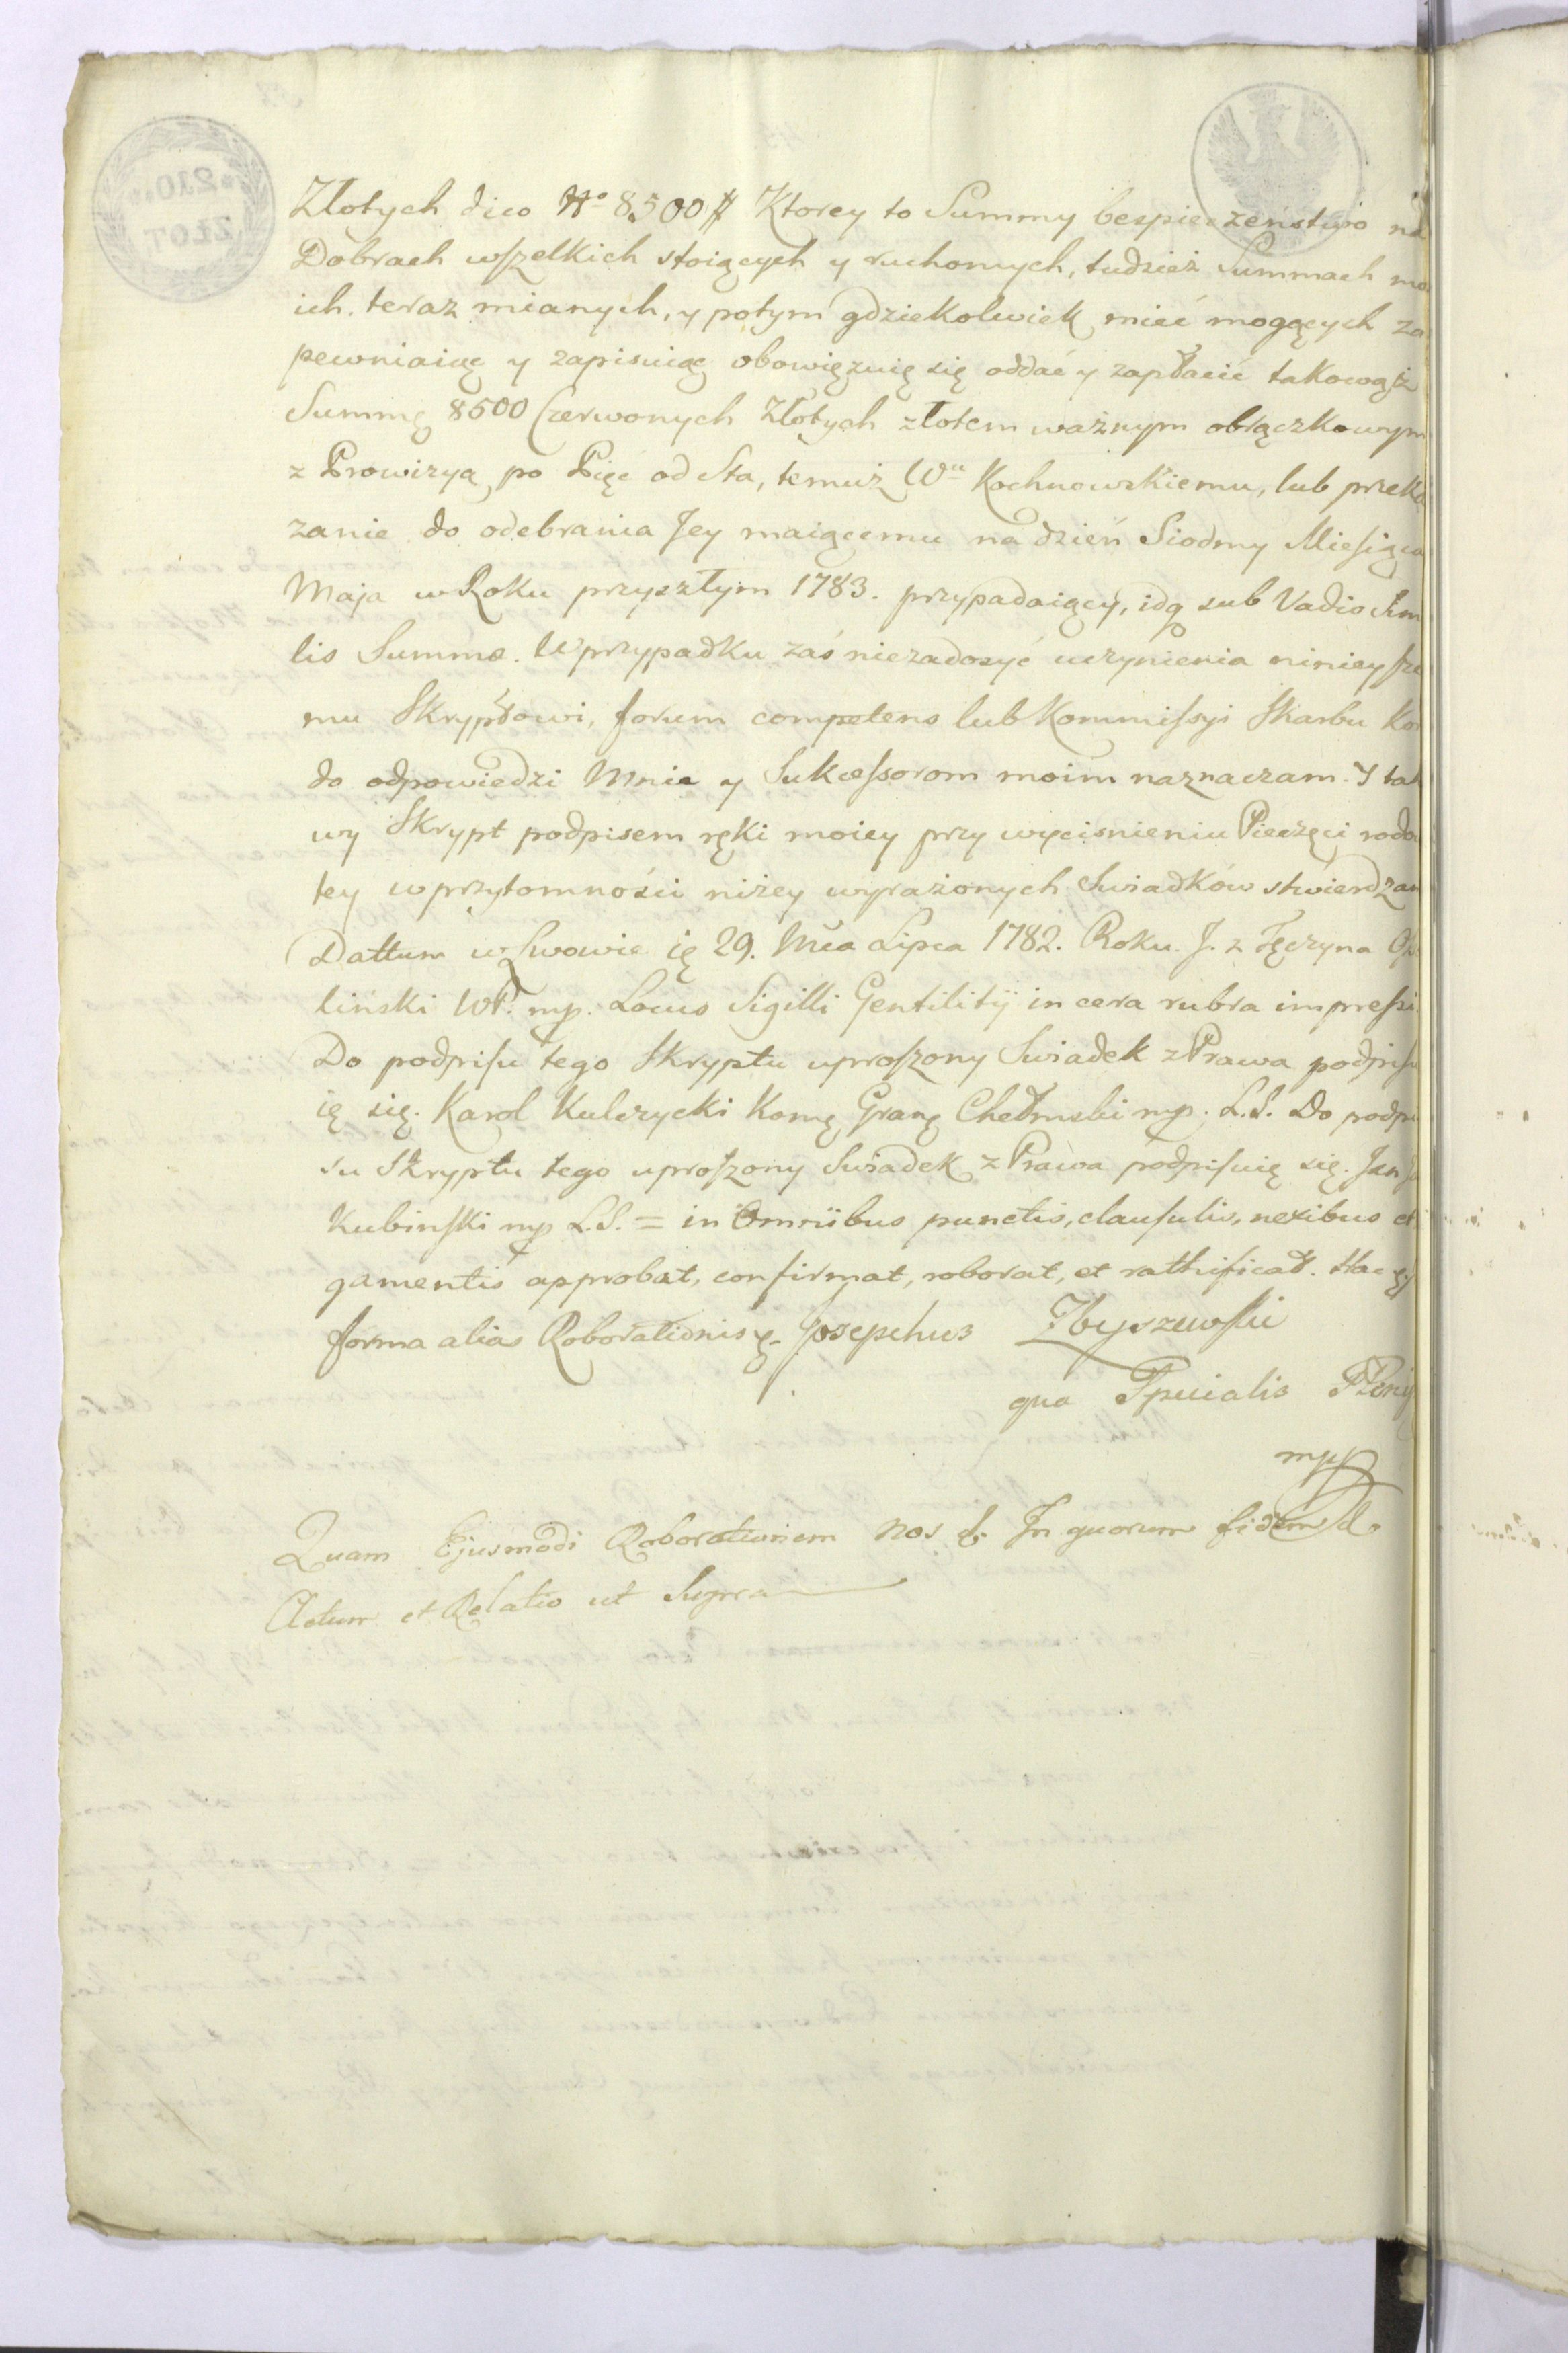 Złotych dico No 8500 # Ktorey to Summy bespieczeństwo na
Dobrach wszelkich stoiących y ruchomych, tudzież Summach mo
ich teraz mianych, y potym gdziekolwiek mieć mogących za
pewniaiąc y zapisuiąc obowięzuię się oddać y zapłacić takowąż
Summę 8500 Czerwonych Złotych złotem ważnym obrączkowym
z Prowizyą po Pięć od Sta, temuż Wu Kochnowskiemu, lub przeka
zanie do odebrania Jey maiącemu na dzień Siodmy Miesiąca
Maja w Roku przyszłym 1783. przypadaiący, idq sub Vadio Simi
lis Summæ. W przypadku zaś niezadosyć uczynienia ninieysze
mu Skryptowi, forum competens lub Kommissyi Skarbu Kor
do odpowiedzi Mnie y Sukcessorom moim naznaczam. Y tak
wy Skrypt podpisem ręki moiey przy wycisnieniu Pieczęci rodo
tey w przytomności niżey wyrażonych Swiadków stwierdzam
Dattum w Lwowie ię 29. Mca Lipca 1782. Roku. J. z Tęczyna Os
liński WP. mp. Locus Sigilli Gentilitij in cera rubra impressi.
Do podpisu tego Skryptu uproszony Swiadek z Prawa podpisu
ię się. Karol Kulczycki Komę Granę Chełmski mp. L.S. Do podpi
su Skryptu tego uproszony Swiadek z Prawa podpisuię się. Jan Ja
kubinski mp L.S. = in omnibus punctis, clausulis, nexibus et
gamentis approbat, confirmat, roborat, et rathificat. Hac
forma alias Roborationis Josephus Zbyszewski
qua Specialis Pleni
mpp
Quam Ejusmodi Roborationem nos &. In quorum fidem &
Actum et Relatio ut Supra